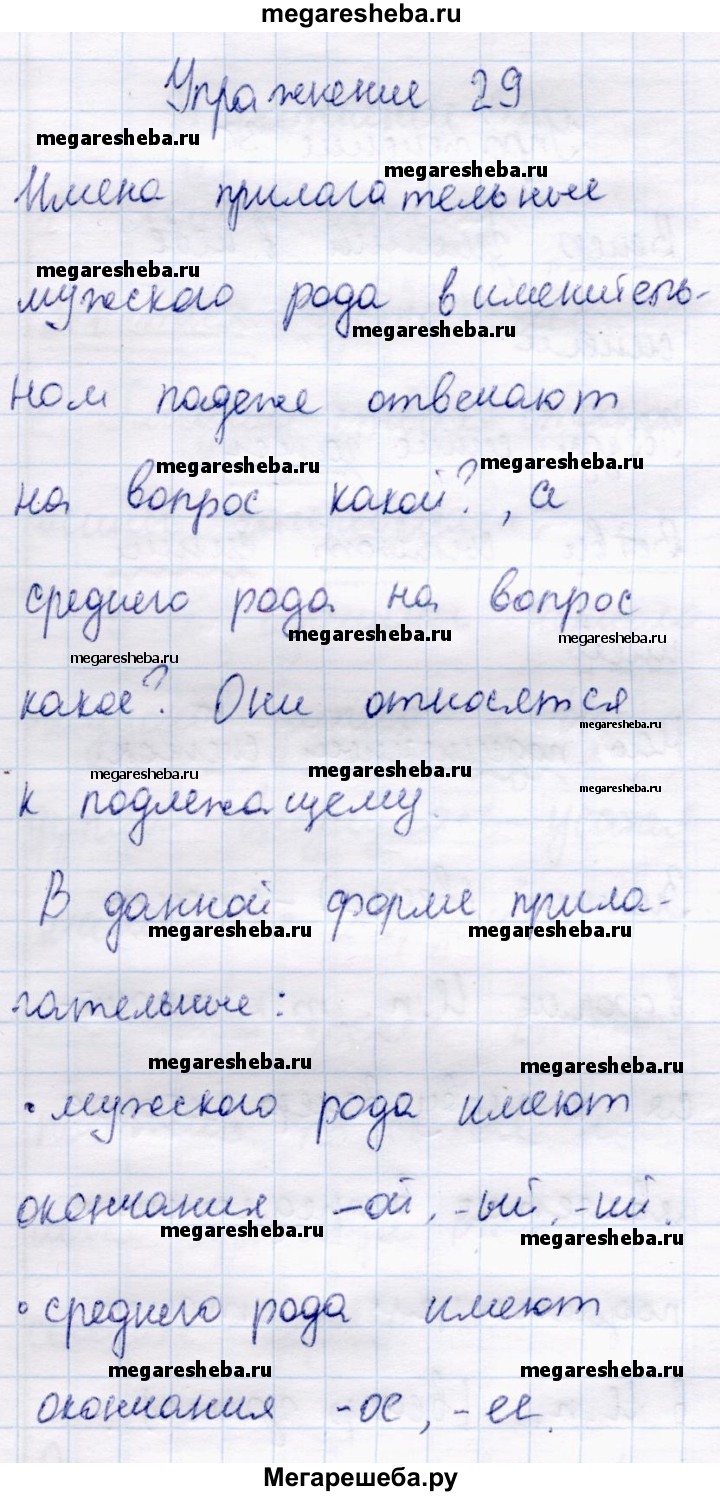 megaresheba.ru
Упражнение 29
megaresheba.ru
megaresheba.ru
Имена прилагательные
megaresheba.ru
мужского рода в именитель-
megaresheba.ru
ном падеже отвечают
megaresheba.ru megaresheba.ru
на вопрос какой?, а
среднего рода на вопрос
megaresheba.ru megaresheba.ru
megaresheba.ru
какое? Они относятся
megaresheba.ru
megaresheba.ru megaresheba.ru
megaresheba.ru
к подлежащему.
В данной форме прила-
megaresheba.ru megaresheba.ru
гательные:
megaresheba.ru megaresheba.ru
• мужского рода имеют
окончания -ой, -ый, -ий.
megaresheba.ru megaresheba.ru
• среднего рода имеют
megaresheba.ru megaresheba.ru
окончания -ое, -ее.
Мегарешеба.ру